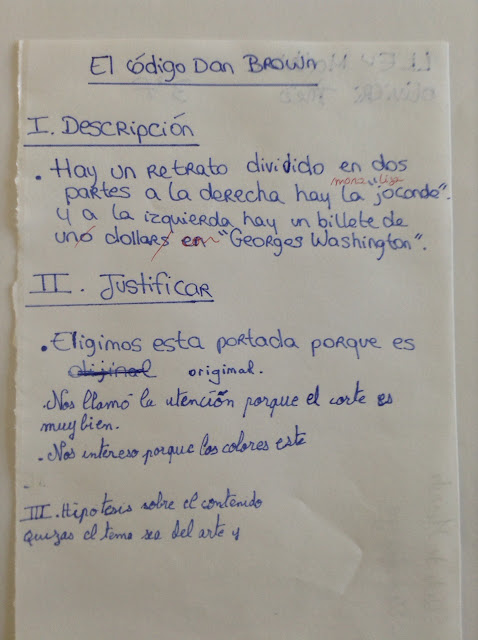 El código Dan BROWN
I. Descripción
. Hay un retrato dividido en dos
mona lisa
partes a la derecha hay la "joconde".
y a la izquierda hay un billete de
uno dollars en "Georges Washington".
II. Justificar
. Eligimos esta portada porque es
original.
. Nos llamó la atención porque el corte es
muy bien.
. Nos intereso porque los colores este
III. Hipotesis sobre el contenido
quizas el tema sea del arte y